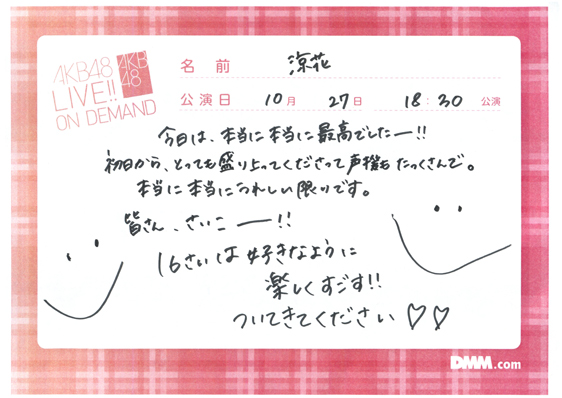 AKB48
LIVE!!
ON DEMAND
AKB
48
名 前 涼花
公演日 10月 27日 18:30 公演
今日は、本当に本当に最高でしたー!!
初日から、とっても盛り上ってくださって声援もたっくさんで。
本当に本当にうれしい限りです。
皆さん、さいこー!!
16さいは好きなように
楽しくすごす!!
ついてきてください♡♡
DMM.com